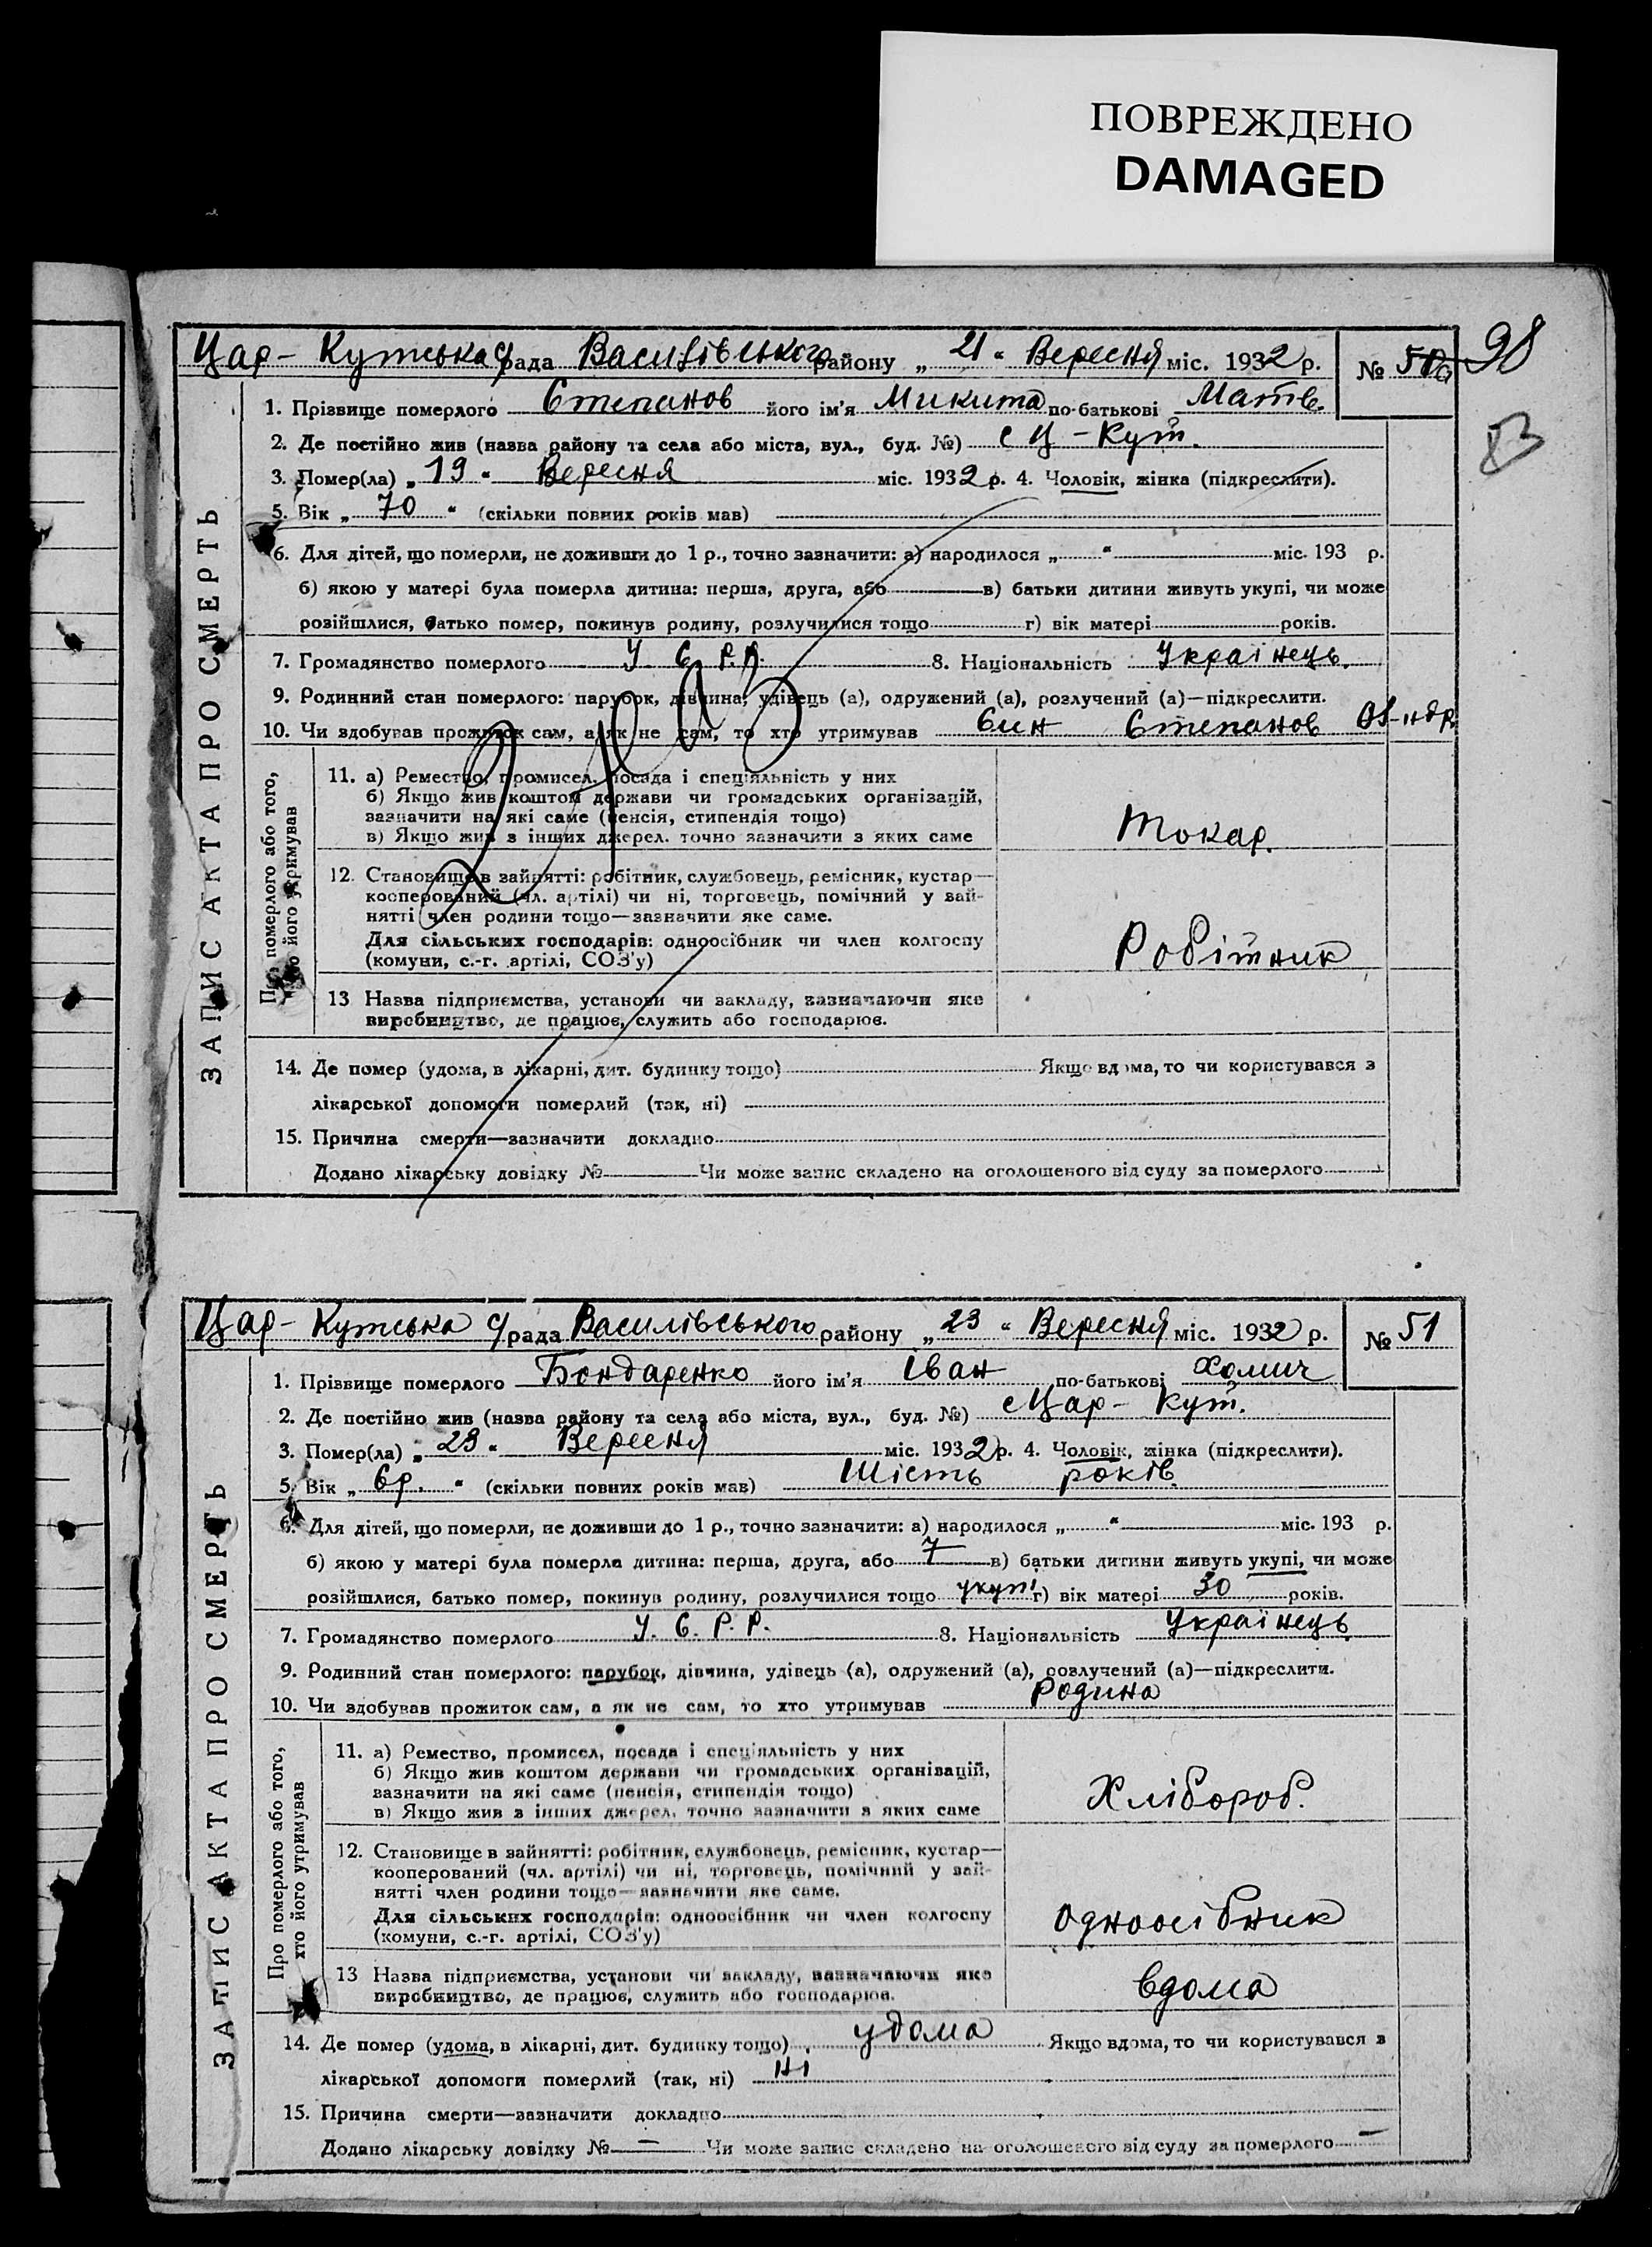 ПОВРЕЖДЕНО
DAMAGED
98
83
Цар-Кутська с/рада Василівського району „21“ Вересня міс. 1932 р. № 50а
1. Прізвище померлого Степанов його ім'я Микита по-батькові Матв.
2. Де постійно жив (назва району та села або міста, вул., буд. №) с Ц-Кут.
3. Помер(ла) „19“ Вересня міс. 1932 р. 4. Чоловік, жінка (підкреслити).
5. Вік „70“ (скільки повних років мав)
6. Для дітей, що померли, не доживши до 1 р., точно зазначити: а) народилося „ “ міс. 193 р.
б) якою у матері була померла дитина: перша, друга, або в) батьки дитини живуть укупі, чи може
розійшлися, батько помер, покинув родину, розлучилися тощо г) вік матері років.
7. Громадянство померлого У. С. Р. Р. 8. Національність Українець.
9. Родинний стан померлого: парубок, дівчина, удівець (а), одружений (а), розлучений (а)—підкреслити.
10. Чи здобував прожиток сам, а як не сам, то хто утримував Син Степанов
ЗАПИС АКТА ПРО СМЕРТЬ
Про померлого або того,
хто його утримував
11. а) Ремество, промисел, посада і спеціяльність у них
б) Якщо жив коштом держави чи громадських організацій,
зазначити на які саме (пенсія, стипендія тощо)
в) Якщо жив з інших джерел, точно зазначити з яких саме
Токар.
12. Становище в зайнятті: робітник, службовець, ремісник, кустар—
кооперований (чл. артілі) чи ні, торговець, помічний у зай-
нятті член родини тощо—зазначити яке саме.
Для сільських господарів: одноосібник чи член колгоспу
(комуни, с.-г. артілі, СОЗ'у)
Робітник
13 Назва підприємства, установи чи закладу, зазначаючи яке
виробництво, де працює, служить або господарює.
14. Де помер (удома, в лікарні, дит. будинку тощо) Якщо вдома, то чи користувався з
лікарської допомоги померлий (так, ні)
15. Причина смерти—зазначити докладно
Додано лікарську довідку № Чи може запис складено на оголошеного від суду за померлого
Цар-Кутська с/рада Василівського району „23“ Вересня міс. 1932 р. № 51
1. Прізвище померлого Бондаренко його ім'я Іван по-батькові Хомич
2. Де постійно жив (назва району та села або міста, вул., буд. №) с Цар-Кут.
3. Помер(ла) „23“ Вересня міс. 1932 р. 4. Чоловік, жінка (підкреслити).
5. Вік „6р.“ (скільки повних років мав) Шість років.
6. Для дітей, що померли, не доживши до 1 р., точно зазначити: а) народилося „ “ міс. 193 р.
б) якою у матері була померла дитина: перша, друга, або 7 в) батьки дитини живуть укупі, чи може
розійшлися, батько помер, покинув родину, розлучилися тощо укупі г) вік матері 30 років.
7. Громадянство померлого У. С. Р. Р. 8. Національність Українець
9. Родинний стан померлого: парубок, дівчина, удівець (а), одружений (а), розлучений (а)—підкреслити.
10. Чи здобував прожиток сам, а як не сам, то хто утримував Родина
ЗАПИС АКТА ПРО СМЕРТЬ
Про померлого або того,
хто його утримував
11. а) Ремество, промисел, посада і спеціяльність у них
б) Якщо жив коштом держави чи громадських організацій,
зазначити на які саме (пенсія, стипендія тощо)
в) Якщо жив з інших джерел, точно зазначити з яких саме
Хлібороб.
12. Становище в зайнятті: робітник, службовець, ремісник, кустар—
кооперований (чл. артілі) чи ні, торговець, помічний у зай-
нятті член родини тощо—зазначити яке саме.
Для сільських господарів: одноосібник чи член колгоспу
(комуни, с.-г. артілі, СОЗ'у)
одноосібник
13 Назва підприємства, установи чи закладу, зазначаючи яке
виробництво, де працює, служить або господарює.
вдома
14. Де помер (удома, в лікарні, дит. будинку тощо) удома Якщо вдома, то чи користувався з
лікарської допомоги померлий (так, ні) Ні
15. Причина смерти—зазначити докладно
Додано лікарську довідку № — Чи може запис складено на оголошеного від суду за померлого —